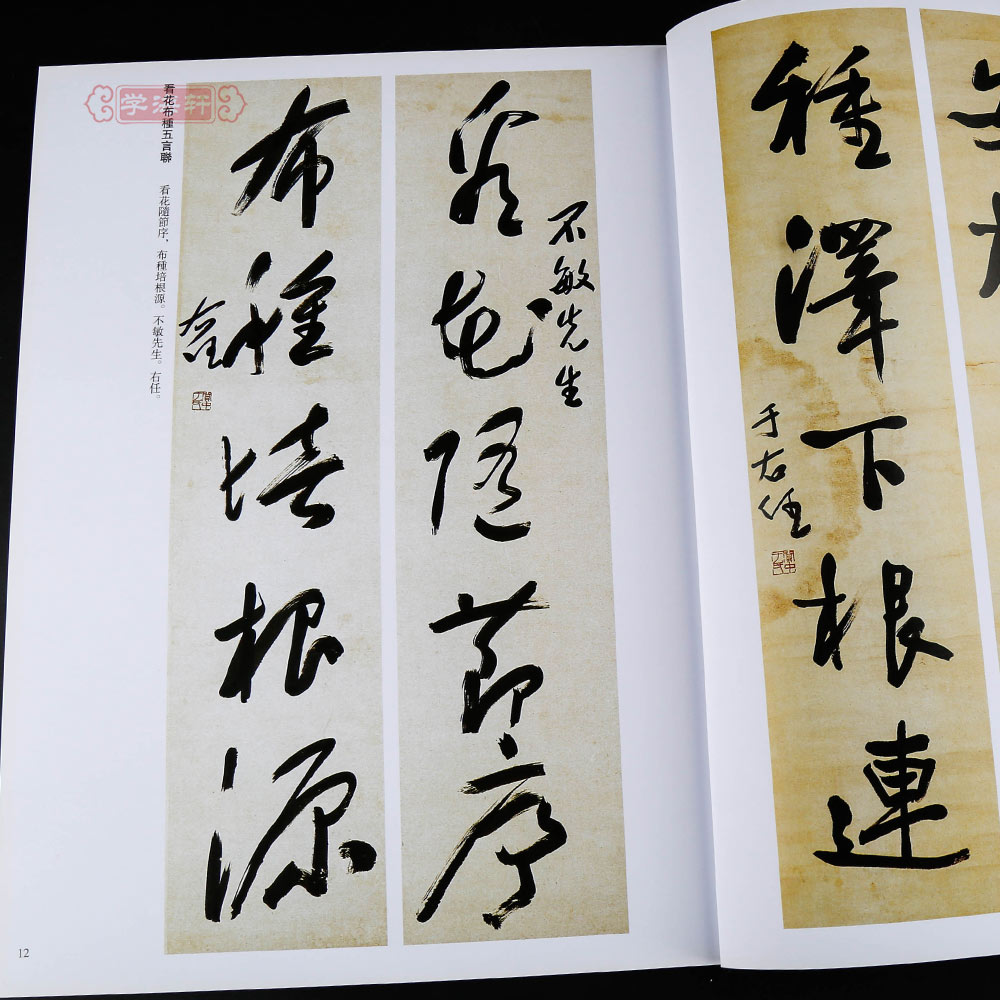 種澤下根連
于右任
關中于氏
不敏先生
看花隨節序
布種培根源
右任
關中于氏
看花布種五言聯
看花隨節序，布種培根源。不敏先生。右任。
学海轩
12